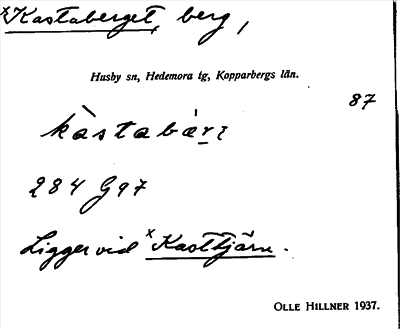 ×Kastaberget, berg,
Husby sn, Hedemora tg, Kopparbergs län.
87
284 G97
Ligger vid ×Kasttjärn.
OLLE HILLNER 1937.